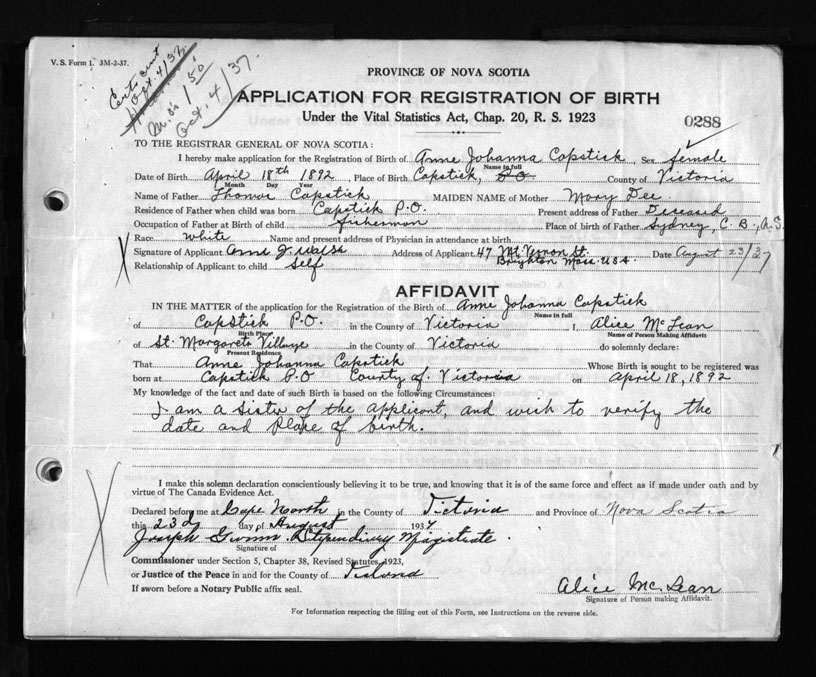 V. S. Form 1. 3M-2-37.
Oct. 4/37
1 50
Oct. 4/37.
PROVINCE OF NOVA SCOTIA
APPLICATION FOR REGISTRATION OF BIRTH
Under the Vital Statistics Act, Chap. 20, R. S. 1923
0288
TO THE REGISTRAR GENERAL OF NOVA SCOTIA:
I hereby make application for the Registration of Birth of Anne Johanna Capstick, Sex female
Name in full
Date of Birth April 18th 1892, Place of Birth Capstick, P.O. County of Victoria
Month Day Year
Name of Father Thomas Capstick MAIDEN NAME of Mother Mary Dee
Residence of Father when child was born Capstick P.O. Present address of Father Deceased
Occupation of Father at Birth of child fisherman Place of birth of Father Sydney, C. B., N.S.
Race white Name and present address of Physician in attendance at birth
Signature of Applicant Anne J. Walsh Address of Applicant 47 Mt. Vernon St. Brighton Mass. USA. Date August 23/37
Relationship of Applicant to child self
AFFIDAVIT
IN THE MATTER of the application for the Registration of the Birth of Anne Johanna Capstick
Name in full
of Capstick P.O. in the County of Victoria I, Alice McLean
Birth Place Name of Person Making Affidavit
of St. Margarets Village in the County of Victoria do solemnly declare:
Present Residence
That Anne Johanna Capstick Whose Birth is sought to be registered was
born at Capstick P.O County of Victoria on April 18, 1892
My knowledge of the fact and date of such Birth is based on the following Circumstances:
I am a sister of the applicant, and wish to verify the
date and place of birth.
I make this solemn declaration conscientiously believing it to be true, and knowing that it is of the same force and effect as if made under oath and by
virtue of The Canada Evidence Act.
Declared before me at Cape North in the County of Victoria and Province of Nova Scotia
this 23d day of August 1937
Joseph Gwinn Stipendiary Magistrate.
Signature of
Commissioner under Section 5, Chapter 38, Revised Statutes, 1923,
or Justice of the Peace in and for the County of
If sworn before a Notary Public affix seal.
Alice McLean
Signature of Person making Affidavit.
For Information respecting the filling out of this Form, see Instructions on the reverse side.